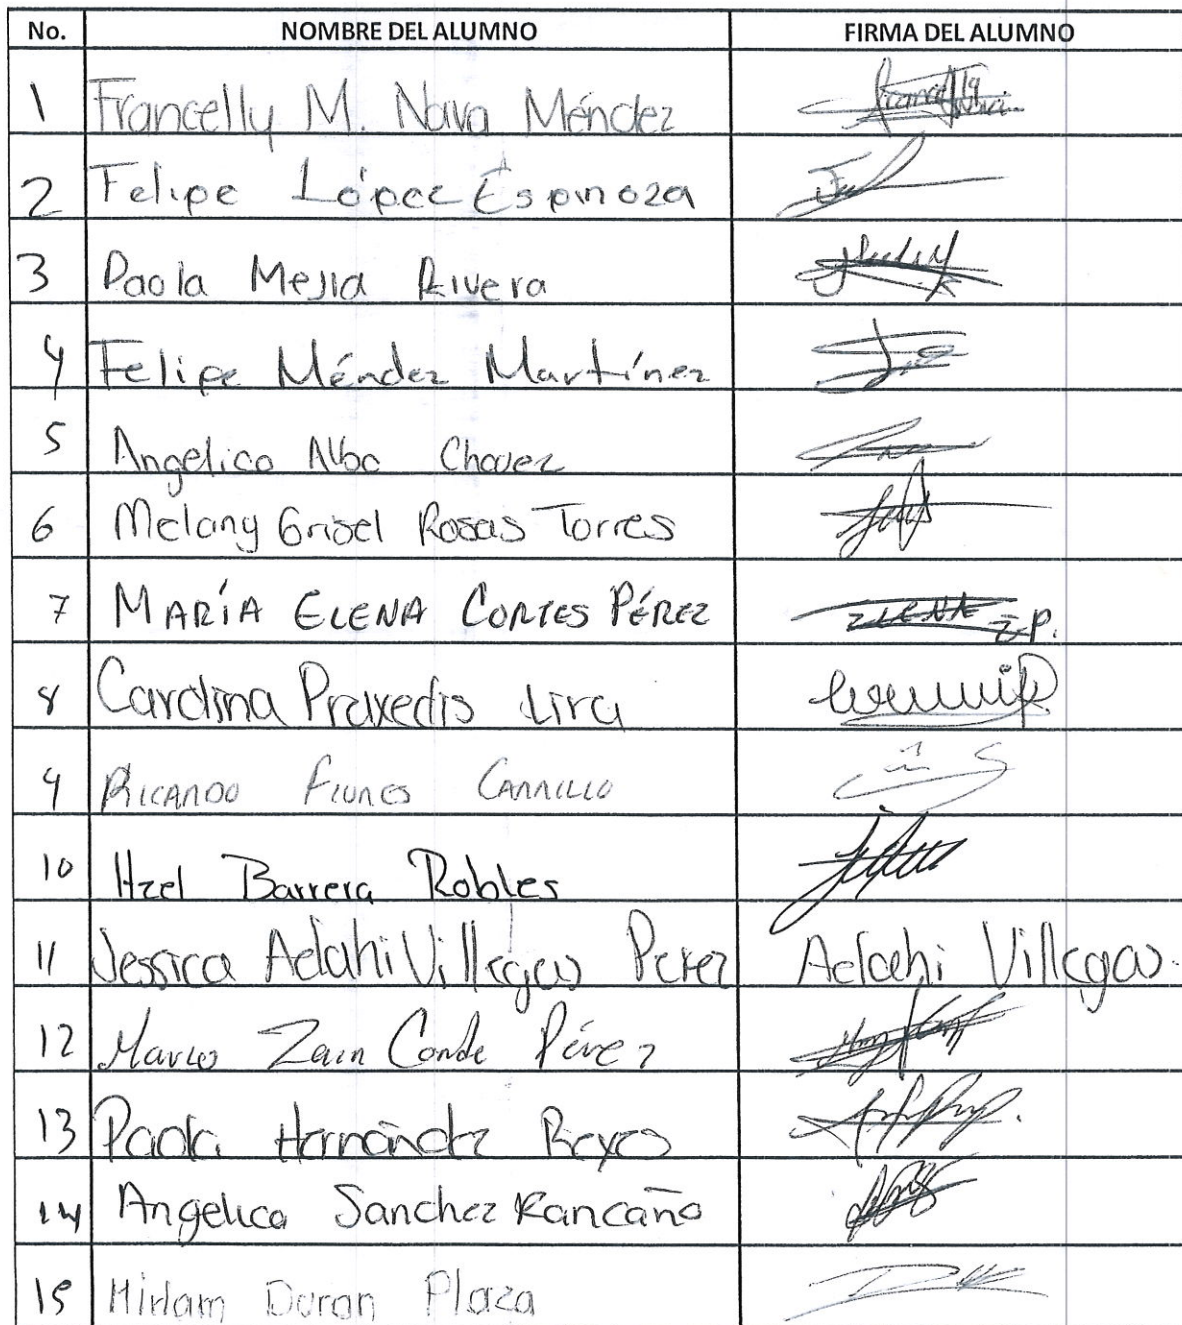 No. NOMBRE DEL ALUMNO FIRMA DEL ALUMNO
1 Francelly M. Nava Méndez
2 Felipe López Espinoza
3 Paola Mejia Rivera
4 Felipe Méndez Martínez
5 Angelica Alba Chavez
6 Melany Grisel Rosas Torres
7 MARÍA ELENA CORTES PÉREZ ELENA
8 Carolina Praxedis Lira
9 RICARDO FUNES CARRILLO
10 Itzel Barrera Robles
11 Jessica Adahi Villegas Perez Adahi Villegas
12 Marco Zain Conde Pérez
13 Paola Hernández Reyes
14 Angelica Sanchez Rancaño
15 Miriam Duran Plaza